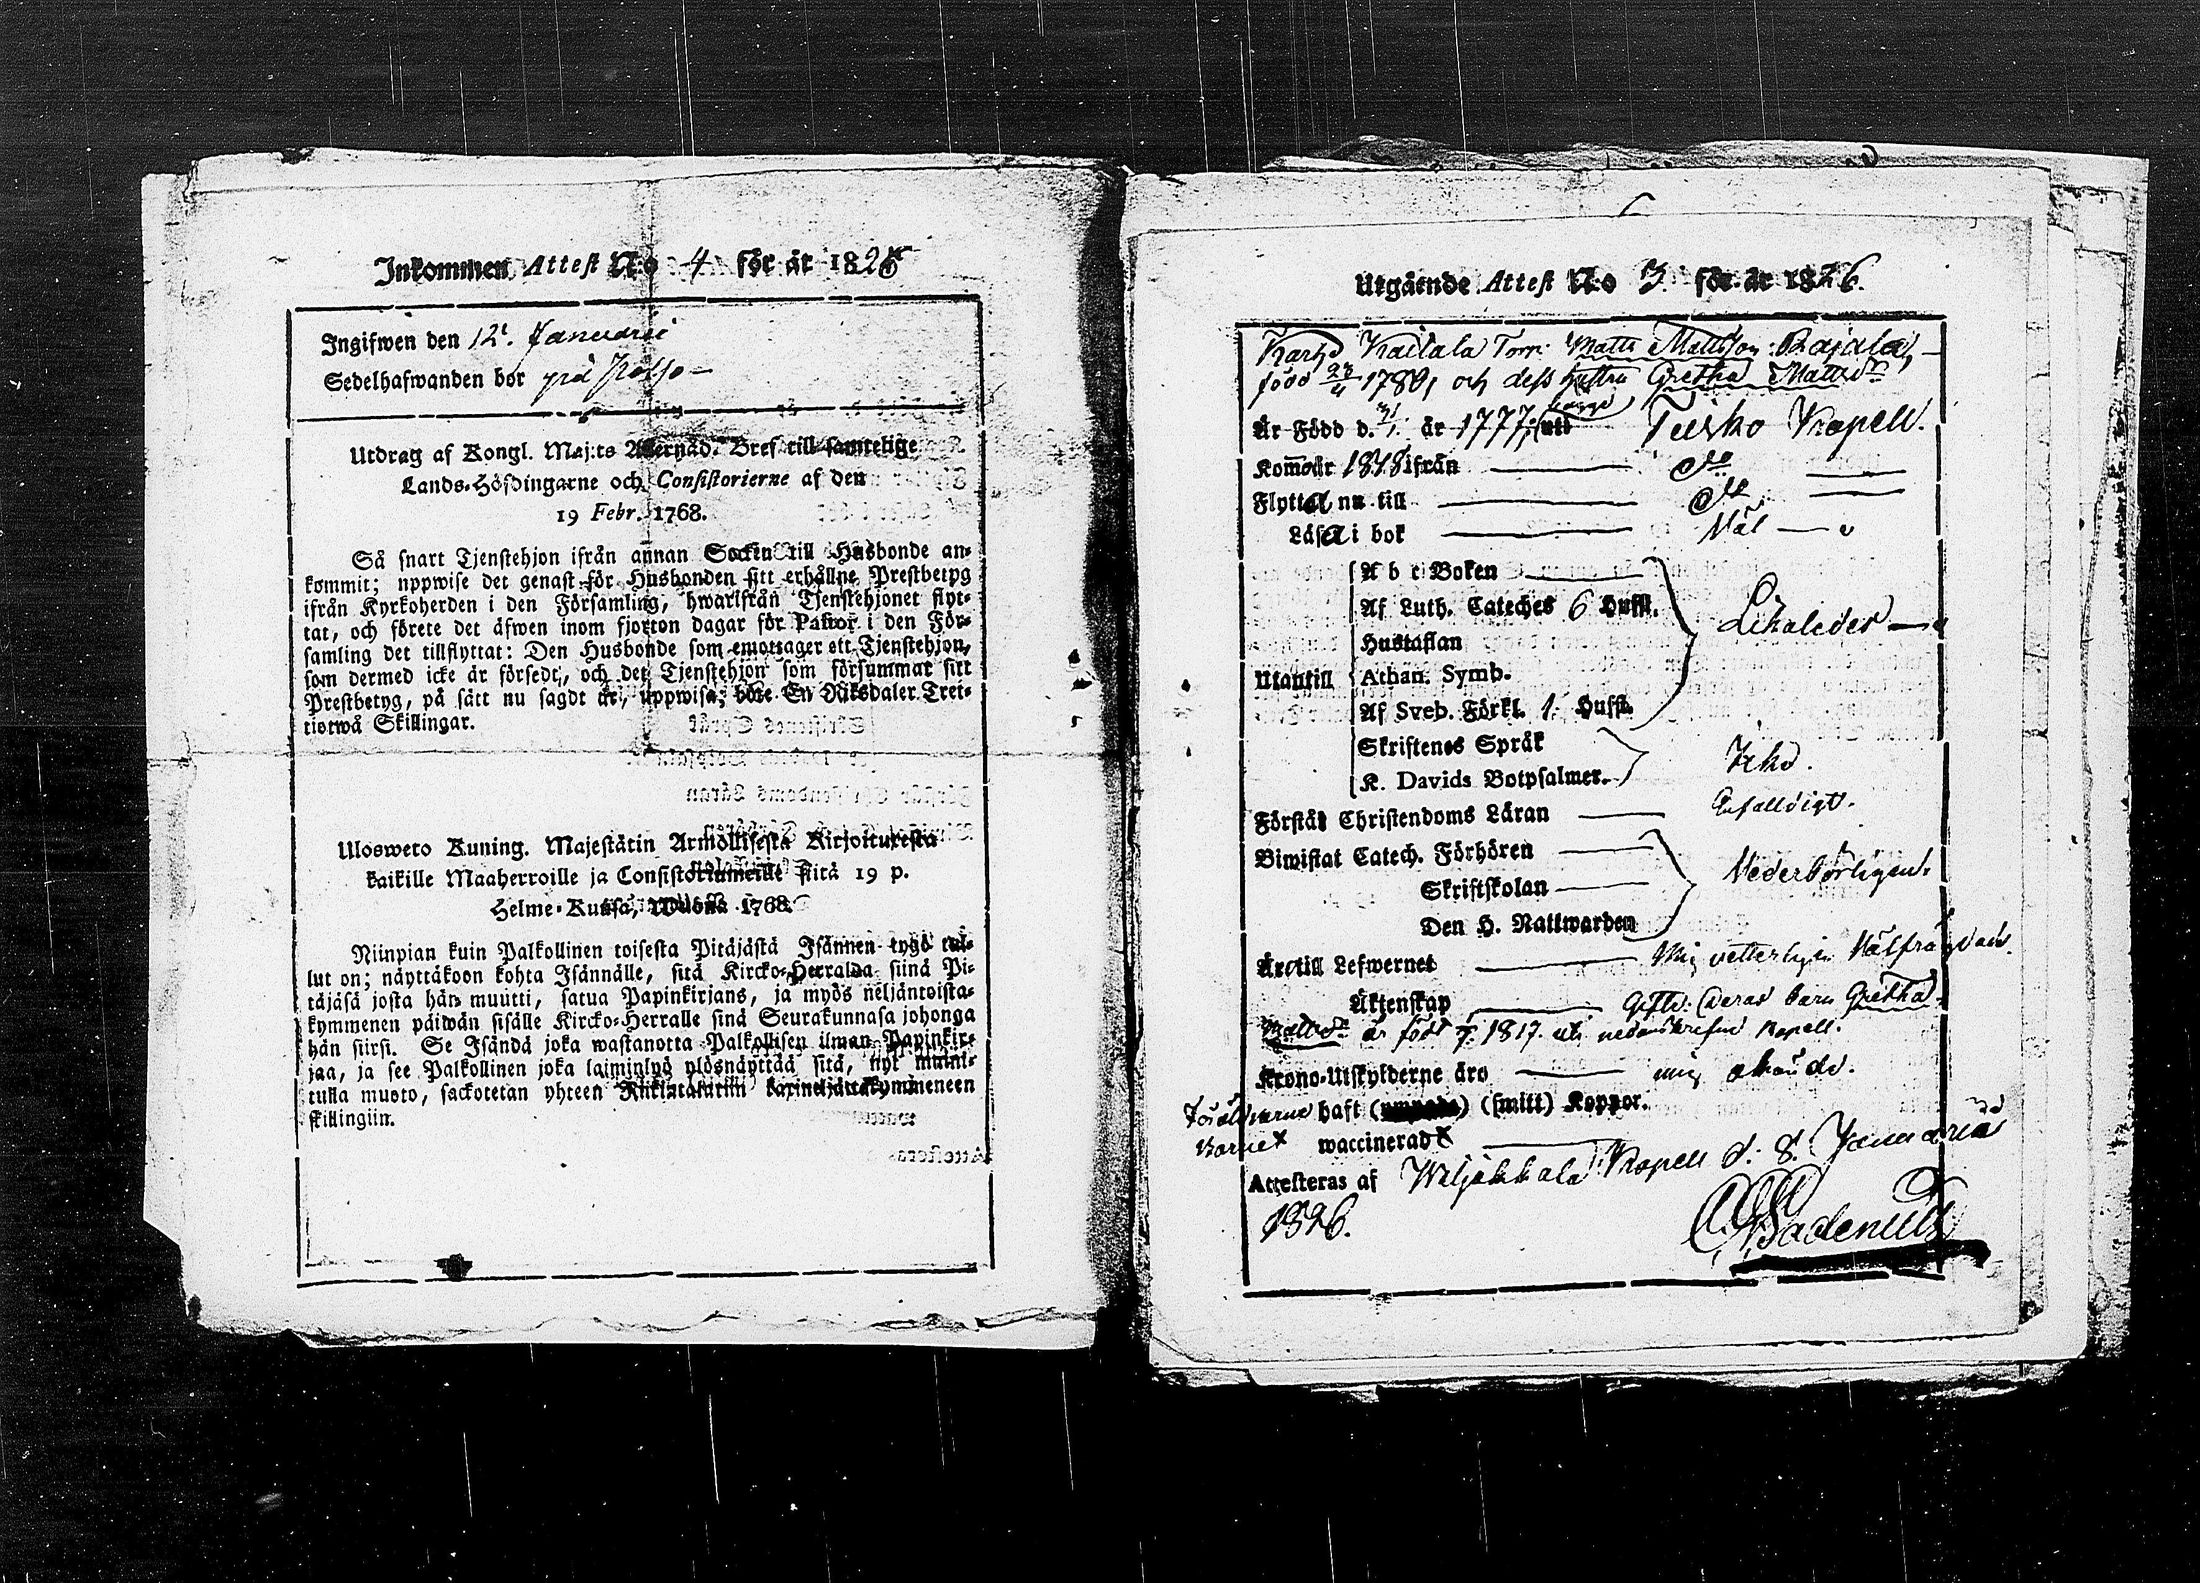 Inkommen Attest N:o 4 för år 1826
Ingifwen den 12. Januarii
Sedelhafwanden bor på
Utdrag af Kongl. Maj:ts Allernåd. Bref till samtelige
Lands-Höfdingarne och Consistorierne af den
19 Febr. 1768.
Så snart Tjenstehjon ifrån annan Sockin till Husbonde an-
kommit; uppwise det genast för Husbonden sitt erhållne Prestbetyg
ifrån Kyrkoherden i den Församling, hwarifrån Tjenstehjonet flyt-
tat, och förete det äfwen inom fjorton dagar för Pastor i den För-
samling det tillflyttat: Den Husbonde som emottager ett Tjenstehjon,
som dermed icke är försedt, och det Tjenstehjon som försummar sitt
Prestbetyg, på sätt nu sagdt är, uppwisa, böte En Riksdaler Tret-
tiotwå Skillingar.
Ulosweto Kuning. Majestätin Armollisesta Kirjoituxesta
kaikille Maaherroille ja Consistoriumeille siitä 19 p.
Helme-Kuusa, Wuonna 1768.
Niinpian kuin Palkollinen toisesta Pitäjästä Isännen tygö tul-
lut on; näyttäkoon kohta Isännälle, sitä Kircko-Herralda siinä Pi-
täjäsä josta hän muutti, saatua Papinkirjans, ja myös neljäntoista-
kymmenen päiwän sisälle Kircko-Herralle sinä Seurakunnasa johonga
hän siirsi. Se Isändä joka wastanotta Palkollisen ilman Papinkir-
jaa, ja see Palkollinen joka laiminlyö ylösnäyttää sitä, nyt maini-
tulla muoto, sackotetan yhteen Riikintalariin kaxineljättäkymmeneen
skillingiin.
Utgående Attest N:o 3. för år 1826.
Kaitala Torp. Matts Mattsson Rajala,
född 23/11 1780, och dess hustru Gretha Mattsdr
Är Född d. 31/1. år 1777, uti Kapell.
Kommo år 1818 ifrån — d:o —
Flytta nu till — d:o —
Läsa i bok — Väl —
A b c Boken
Af Luth. Cateches 6 Hufst.
Hustaflan
Utantill
Athan. Symb.
Af Sveb. Förkl. 1. Hufst.
Likaledes —
Skriftenes Språk
K. Davids Botpsalmer.
Icke.
Förstå Christendoms Läran — Enfalldigt.
Biwistat Catech. Förhören
Skriftskolan
Den H. Nattwarden
Vederbörligen.
Äro till Lefwernet — Mig vetterligen Välfrägdade.
Äktenskap — Gifte: Deras barn Gretha
Mattsdr är född 1817. uti nedanskrefne Kapell.
Krono-Utskylderne äro — mig okände.
Föräldrarne haft (smitt) Koppor.
Barnet waccineradt
Attesteras af Kapell d. 8. Januarii
1826.